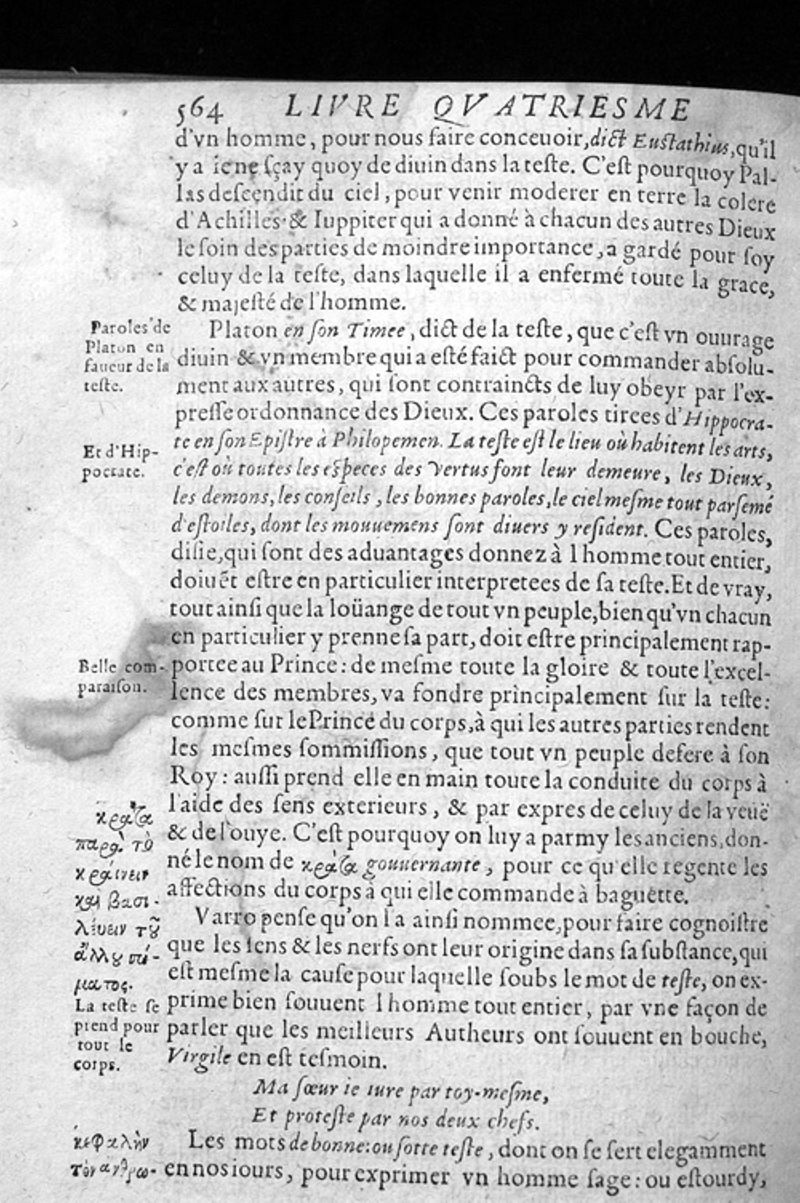 564 LIVRE QVATRIESME
d'vn homme, pour nous faire conceuoir, dict Eustathius, qu'il
y a ie ne sçay quoy de diuin dans la teste. C'est pourquoy Pal-
las descendit du ciel, pour venir moderer en terre la colere
d'Achilles. & Iuppiter qui a donné à chacun des autres Dieux
le soin des parties de moindre importance, a gardé pour soy
celuy de la teste, dans laquelle il a enfermé toute la grace,
& majesté de l'homme.
Paroles de
Platon en
faueur de la
teste.
Platon en son Timee, dict de la teste, que c'est vn ouurage
diuin & vn membre qui a esté faict pour commander absolu-
ment aux autres, qui sont contraincts de luy obeyr par l'ex-
presse ordonnance des Dieux. Ces paroles tirees d'Hippocra-
Et d'Hip-
pocrate.
te en son Epistre à Philopemen. La teste est le lieu où habitent les arts,
c'est où toutes les especes des Vertus font leur demeure, les Dieux,
les demons, les conseils, les bonnes paroles, le ciel mesme tout parsemé
d'estoiles, dont les mouuemens sont diuers y resident. Ces paroles,
disie, qui sont des aduantages donnez à l homme tout entier,
doiuẽt estre en particulier interpretees de sa teste. Et de vray,
tout ainsi que la loüange de tout vn peuple, bien qu'vn chacun
en particulier y prenne sa part, doit estre principalement rap-
Belle com-
paraison.
portee au Prince: de mesme toute la gloire & toute l'excel-
lence des membres, va fondre principalement sur la teste:
comme sur le Prince du corps, à qui les autres parties rendent
les mesmes sommissions, que tout vn peuple defere à son
Roy: aussi prend elle en main toute la conduite du corps à
l'aide des sens exterieurs, & par expres de celuy de la veuë
& de l'ouye. C'est pourquoy on luy a parmy les anciens, don-
né le nom de κρᾶτα gouuernante, pour ce qu'elle regente les
affections du corps à qui elle commande à baguette.
κρᾶτα
παρὰ τὸ
κραίνειν
καὶ βασι-
λεύειν τοῦ
ἄλλου σώ-
ματος.
Varro pense qu'on l'a ainsi nommee, pour faire cognoistre
que les sens & les nerfs ont leur origine dans sa substance, qui
est mesme la cause pour laquelle soubs le mot de teste, on ex-
La teste se
prend pour
tout le
corps.
prime bien souuent l homme tout entier, par vne façon de
parler que les meilleurs Autheurs ont souuent en bouche,
Virgile en est tesmoin.
Ma sœur ie iure par toy-mesme,
Et proteste par nos deux chefs.
κεφαλὴν
τὸν ἄνθρω-
Les mots de bonne: ou sotte teste, dont on se sert elegamment
en nos iours, pour exprimer vn homme sage: ou estourdy,